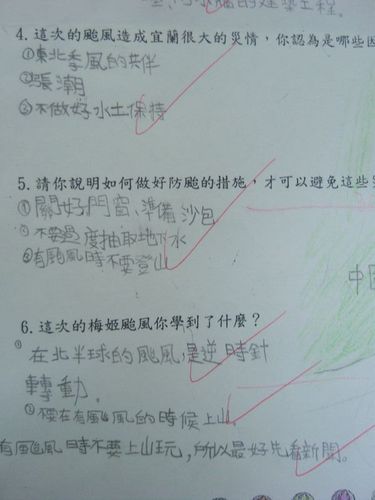 的建築工程。
4. 這次的颱風造成宜蘭很大的災情，你認為是哪些因
①東北季風的共伴
②張潮
③不做好水土保持
5. 請你說明如何做好防颱的措施，才可以避免這些
①關好門窗、準備沙包
②不要過度抽取地下水
③有颱風時不要登山
6. 這次的梅姬颱風你學到了什麼？
①在北半球的颱風，是逆時針
轉動。
②不要在有颱風的時候上山。
有颱風時不要上山玩，所以最好先看新聞。
中